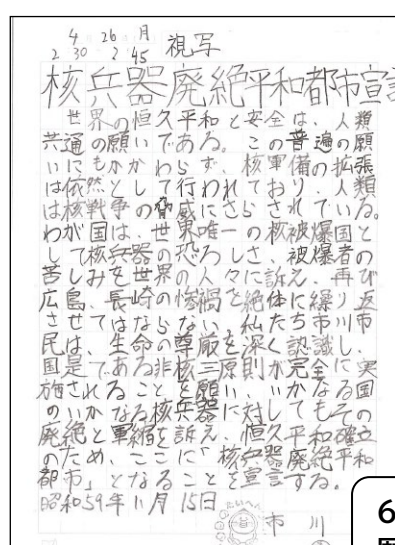 4 26 月
2 30 - 2 45 視写
核兵器廃絶平和都市宣
世界の恒久平和と安全は、人類
共通の願いである。この普遍の願
いにもかかわらず、核軍備の拡張
は依然として行われており、人類
は核戦争の脅威にさらされている。
わが国は、世界唯一の核被爆国と
して核兵器の恐ろしさ、被爆者の
苦しみを世界の人々に訴え、再び
広島、長崎の惨禍を絶体に繰り返
させてはならない。私たち市川市
民は、生命の尊厳を深く認識し、
国是である非核三原則が完全に実
施されることを願い、いかなる国
のいかなる核兵器に対してもその
廃絶と軍縮を訴え、恒久平和確立
のため、ここに「核兵器廃絶平和
都市」となることを宣言する。
昭和59年11月15日
たいへん
市川
6